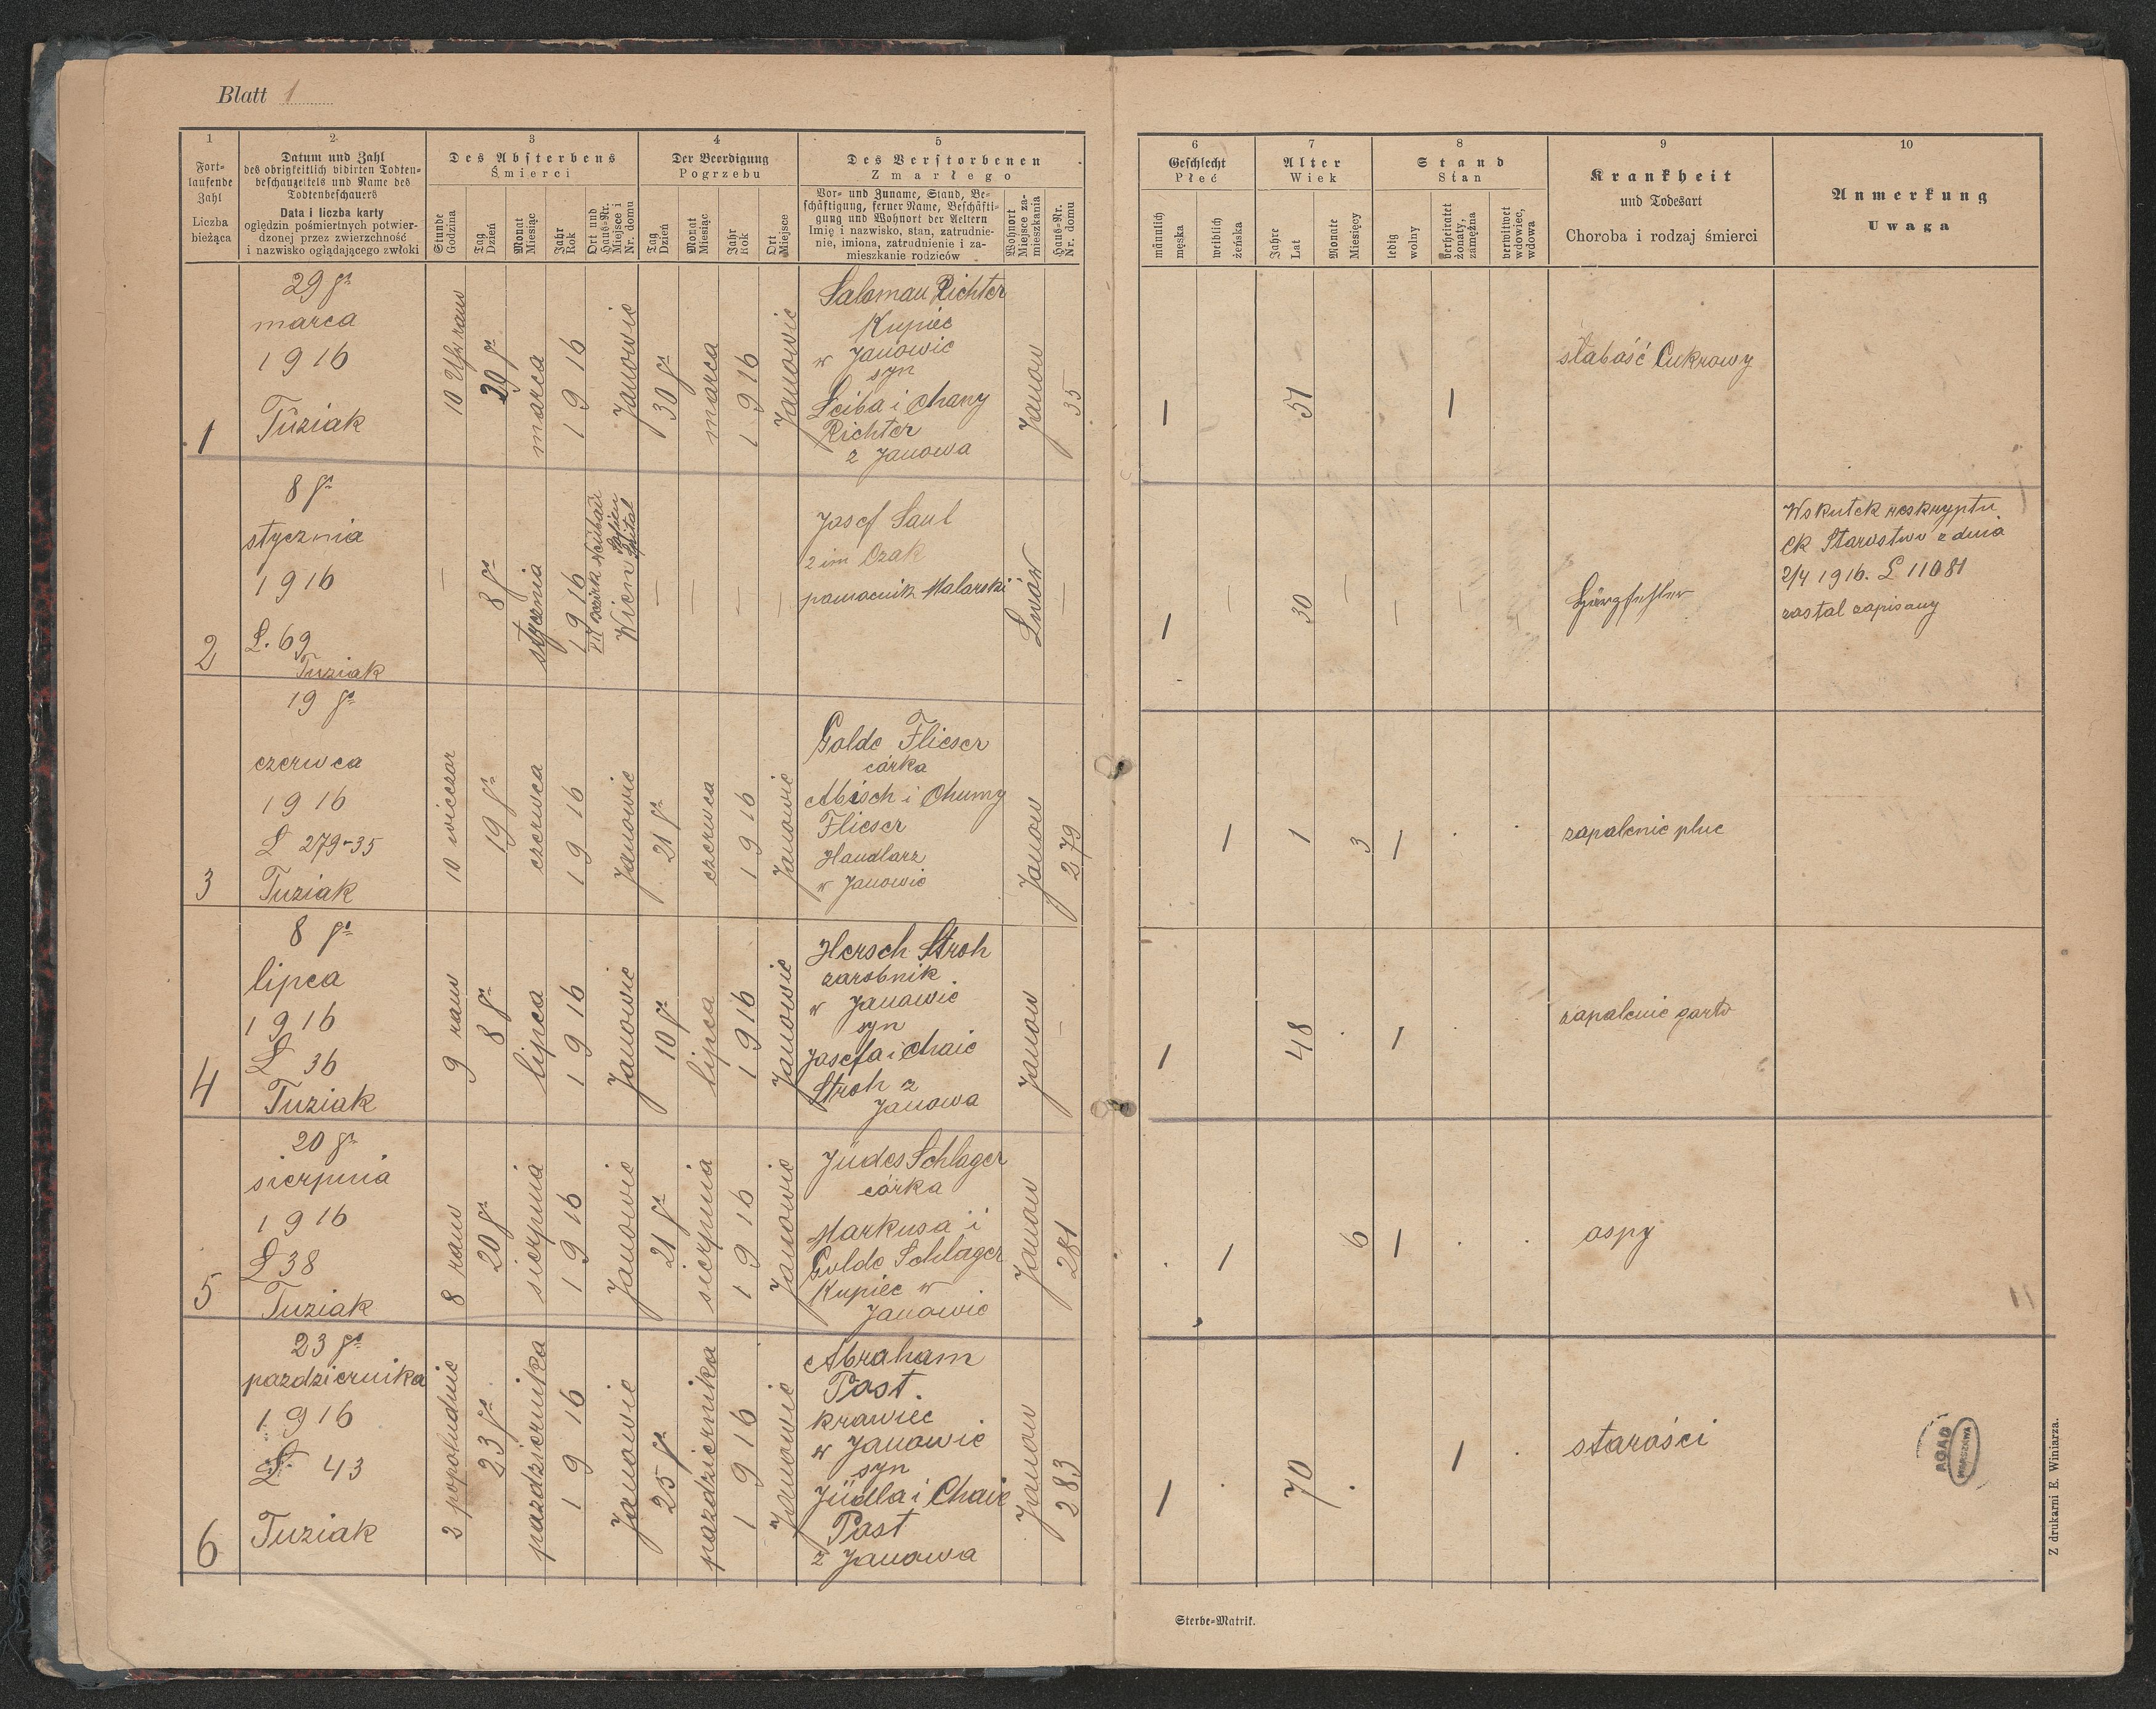 Blatt 1
1
Fort-
laufende
Zahl
Liczba
bieżąca
2
Datum und Zahl
des obrigkeitlich vidirten Todten-
beschauzettels und Name des
Todtenbeschauers
Data i liczba karty
oględzin pośmiertnych potwier-
dzonej przez zwierzchność
i nazwisko oglądającego zwłoki
3
Des Absterbens
Śmierci
Stunde
Godzina
Tag
Dzień
Monat
Miesiąc
Jahr
Rok
Ort und
Haus-Nr.
Miejsce i
Nr. domu
4
Der Beerdigung
Pogrzebu
Tag
Dzień
Monat
Miesiąc
Jahr
Rok
Ort
Miejsce
5
Des Verstorbenen
Zmarłego
Vor- und Zuname, Stand, Be-
schäftigung, ferner Name, Beschäfti-
gung und Wohnort der Aeltern
Imię i nazwisko, stan, zatrudnie-
nie, imiona, zatrudnienie i za-
mieszkanie rodziców
Wohnort
Miejsce za-
mieszkania
Haus-Nr.
Nr. domu
6
Geschlecht
Płeć
männlich
męska
weiblich
żeńska
7
Alter
Wiek
Jahre
Lat
Monate
Miesięcy
8
Stand
Stan
ledig
wolny
verheiratet
żonaty,
zamężna
verwitwet
wdowiec,
wdowa
9
Krankheit
und Todesart
Choroba i rodzaj śmierci
10
Anmerkung
Uwaga
1
29 go
marca
1916
Tuziak
10 Uhr rano
29 go
marca
1916
Janowie
30 go
marca
1916
Janowie
Saloman Richter
Kupiec
w Janowie
syn
Leiba i Chany
Richter
z Janowa
Janow
35
1
51
1
słabość Cukrowy
2
8 go
stycznia
1916
L. 69
Tuziak
—
8 go
stycznia
1916
Wien
Spital
—
—
—
—
Josef Saul
2 im Ozak
pomocnik Malarski
Lwow
—
1
—
30
—
—
—
Wskutek reskryptu
CK Starostwo z dnia
2/4 1916. L 11081
zastal zapisany
3
19 go
czerwca
1916
L 279-35
Tuziak
10 wieczor
19 go
czerwca
1916
Janowie
21 go
czerwca
1916
Janowie
Golde Flieser
córka
Abisch i Chumy
Flieser
Handlarz
w Janowie
Janow
279
1
1
3
1
zapalenie pluc
4
8 go
lipca
1916
L 36
Tuziak
9 rano
8 go
lipca
1916
Janowie
10 go
lipca
1916
Janowie
Hersch Stroh
zarobnik
w Janowie
syn
Josefa i Chaie
Stroh z
Janowa
Janow
—
1
48
1
zapalenie garlo
5
20 go
sierpnia
1916
L 38
Tuziak
8 rano
20 go
sierpnia
1916
Janowie
21 go
sierpnia
1916
Janowie
Jüdes Schlager
córka
Markusa i
Golde Schlager
Kupiec w
Janowie
Janow
281
1
6
1
ospy
6
23 go
pazdziernika
1916
L. 43
Tuziak
2 popoludnie
23 go
pazdziernika
1916
Janowie
25 go
pazdziernika
1916
Janowie
Abraham
Post.
krawiec
w Janowie
syn
Jüdla i Chaie
Post
z Janowa
Janow
283
1
70
1
starości
AGAD
WARSZAWA
Z drukarni E. Winiarza.
Sterbe-Matrik.